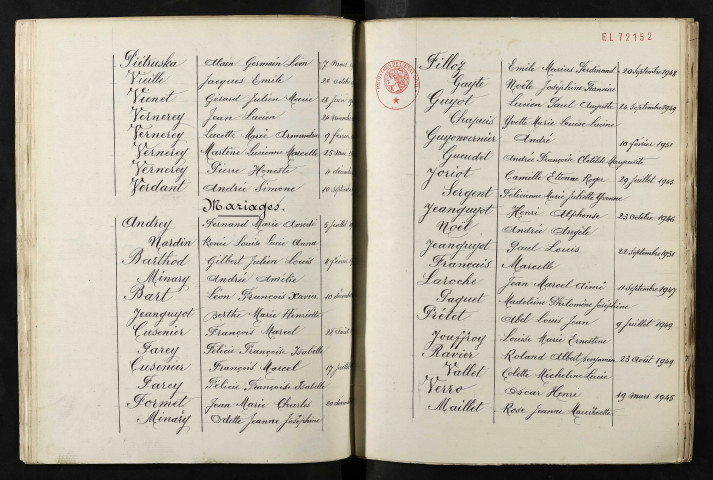 Pietruska Alain Germain Léon 7 Mars
Vieille Jacques Emile 26 octobre
Vienot Gérard Julien Marie 18 juin
Vernerey Jean Lucien novembre
Vernerey Lucette Marie Armandine 9 février
Vernerey Martine Lucienne Marcelle 25 Mars
Vernerey Pierre Honoste décembre
Verdant Andrée Simone 10 septembre
Mariages.
Andrey Fernand Marie Amédé 5 juillet
Nardin Renée Louise Lucie Anna
Barthod Gilbert Julien Louis 2 février
Minary Andrée Amélie
Bart Léon François Xavier 10 décembre
Jeanguyot Berthe Marie Henriette
Cusenier François Marcel 28 août
Farey Félicie Françoise Isabelle
Cusenier François Marcel 17 juillet
Farey Félicie Françoise Isabelle
Formet Jean Marie Charles 20 décembre
Minary Odette Jeanne Joséphine
EL 72152
Filloz Emile Marius Ferdinand 20 septembre 1948
Guyte Noële Joséphine Francine
Guyot Lucien Paul Auguste 24 septembre 1949
Chapuis Yvette Marie Louise Lucine
Guyonvernier André 10 février 1951
Gaudet Andrée Françoise Clotilde Marguerite
Joriot Camille Etienne Roger 29 juillet 1945
Sergent Félicienne Marie Juliette Yvonne
Jeanguyot Henri Alphonse 23 octobre 1946
Noël Andrée Angèle
Jeanguyot Paul Louis 22 septembre 1951
Français Marcelle
Laroche Jean Marcel Aimé 11 septembre 1947
Paquet Madeleine Philomène Joséphine
Prétot Abel Louis Jean 9 juillet 1949
Jouffroy Louise Marie Ernestine
Ravier Roland Albert Benjamin 23 août 1949
Vallet Colette Micheline Lucie
Verro Oscar Henri 19 mars 1945
Maillet Rose Jeanne Mauricette